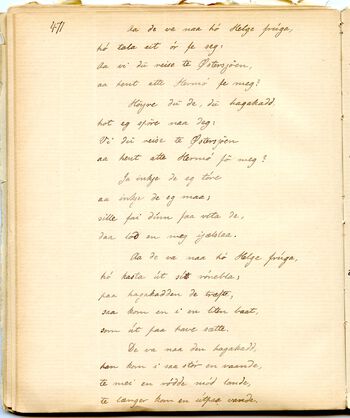 471
Aa de va naa hó Helge frúga,
hó tala eit ór fe seg:
Aa vi dú reise te Østersjøen
aa hent atte Hermó fe meg?
Høyre dú de, dú hagakadd
hot eg spöre naa deg:
Vi dú reise te Østersjøen
aa hent atte Hermó fö meg?
Ja inkje de eg töre
aa inkje de eg maa;
sille fai dúnn paa vita de,
daa lod en meg ihjelslaa.
Aa de va naa hó Helge frúga,
hó kasta út sitt rúnebla;
paa hagakadden de træfte,
saa kom en i en liten baat,
som út paa have sætte.
De va naa den hagakadd,
han kom i saa stór en vaande,
te mei en rodde mód lande,
te længer kom en útpaa vande.